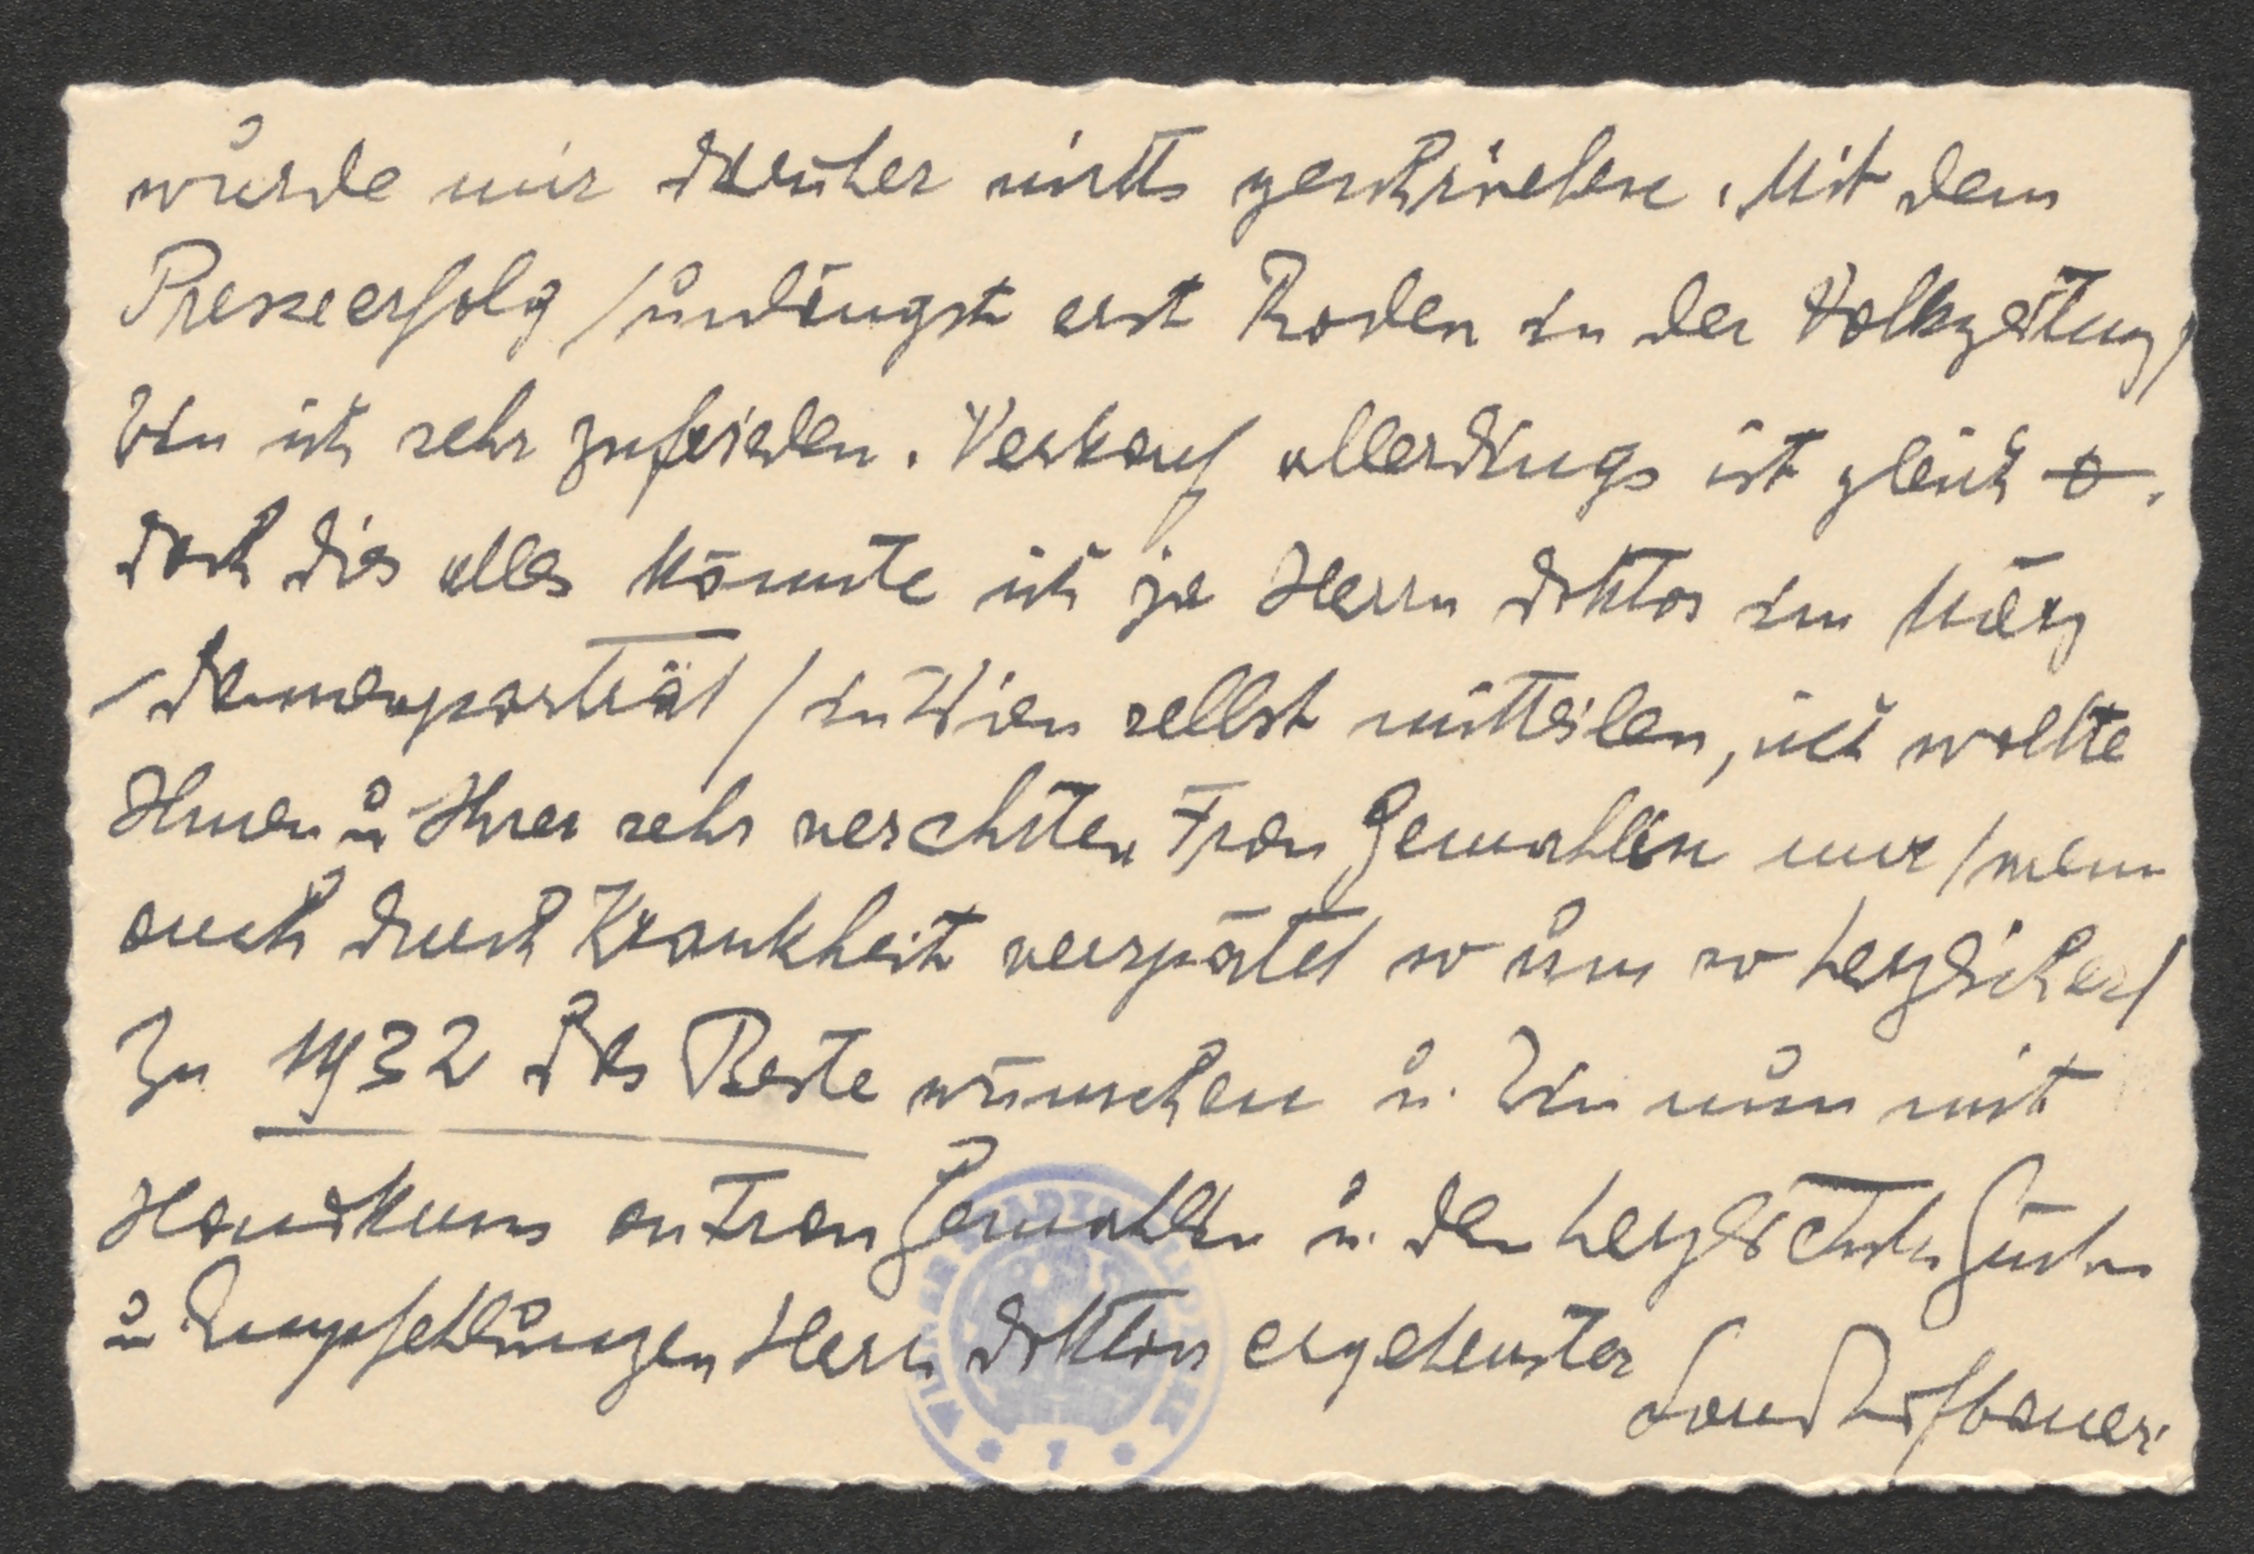 wurde mir darüber nichts geschrieben. Mit dem
Presseerfolg / unlängst erst in der Volkszeitung /
bin ich sehr zufrieden. Verkauf allerdings ist gleich 0.
doch dies alles könnte ich ja Herrn Doktor im März
/ Damenporträt / in Wien selbst mitteilen, ich wollte
Ihnen u Ihrer sehr verehrten Frau Gemahlin nur / wenn
auch durch Krankheit verspätet so um so herzlicher /
Zu 1932 das Beste wünschen u. bin nun mit
Handkuss an Frau Gemahlin u. den herzlichsten Grüßen
u Empfehlungen Herrn Doktors ergebenster
WIENER STADTBIBLIOTHEK
* 7 *